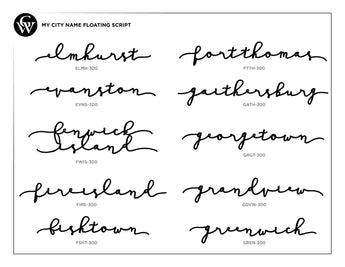 CW
MY CITY NAME FLOATING SCRIPT
elmhurst
ELMH-300
evanston
EVNS-300
fenwick
island
FWIS-300
fireisland
FIRE-300
fishtown
FSHT-300
fortthomas
FTTH-300
gaithersburg
GATH-300
georgetown
GRGT-300
grandview
GDVW-300
greenwich
GREN-300